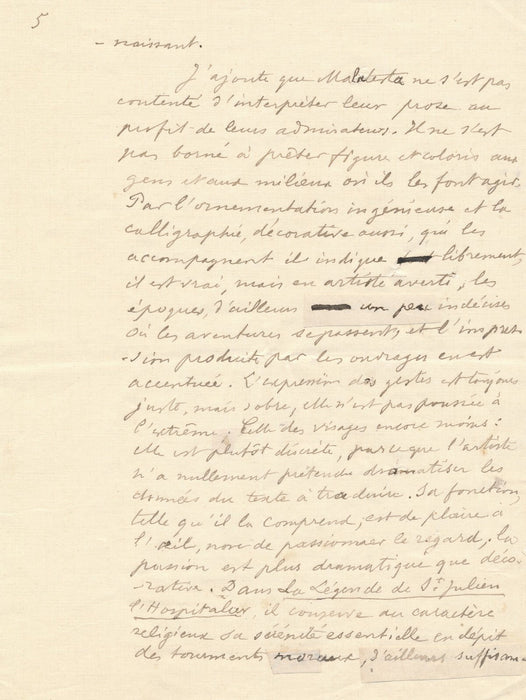 5
- naissant.
J'ajoute que Malatesta ne s'est pas
contenté d'interpréter leur prose au
profit de leurs admirateurs. Il ne s'est
pas borné à prêter figure et coloris aux
gens et aux milieux où ils les font agir.
Par l'ornementation ingénieuse et la
calligraphie, décorative aussi, qui les
accompagnent il indique librement,
il est vrai, mais en artiste averti, les
époques, d'ailleurs un peu indécises
où les aventures se passent, et l'impres
- sion produite par les ouvrages en est
accentuée. L'expression des gestes est toujours
juste, mais sobre, elle n'est pas poussée à
l'extrême. Celle des visages encore moins :
elle est plutôt discrète, parce que l'artiste
n'a nullement prétendu dramatiser les
données du texte à traduire. Sa fonction,
telle qu'il la comprend, est de plaire à
l'œil, non de passionner le regard, la
passion est plus dramatique que déco
- rative. Dans La Légende de St Julien
l'Hospitalier, il conserve au caractère
religieux sa sérénité essentielle en dépit
des tourments moraux, d'ailleurs suffisam